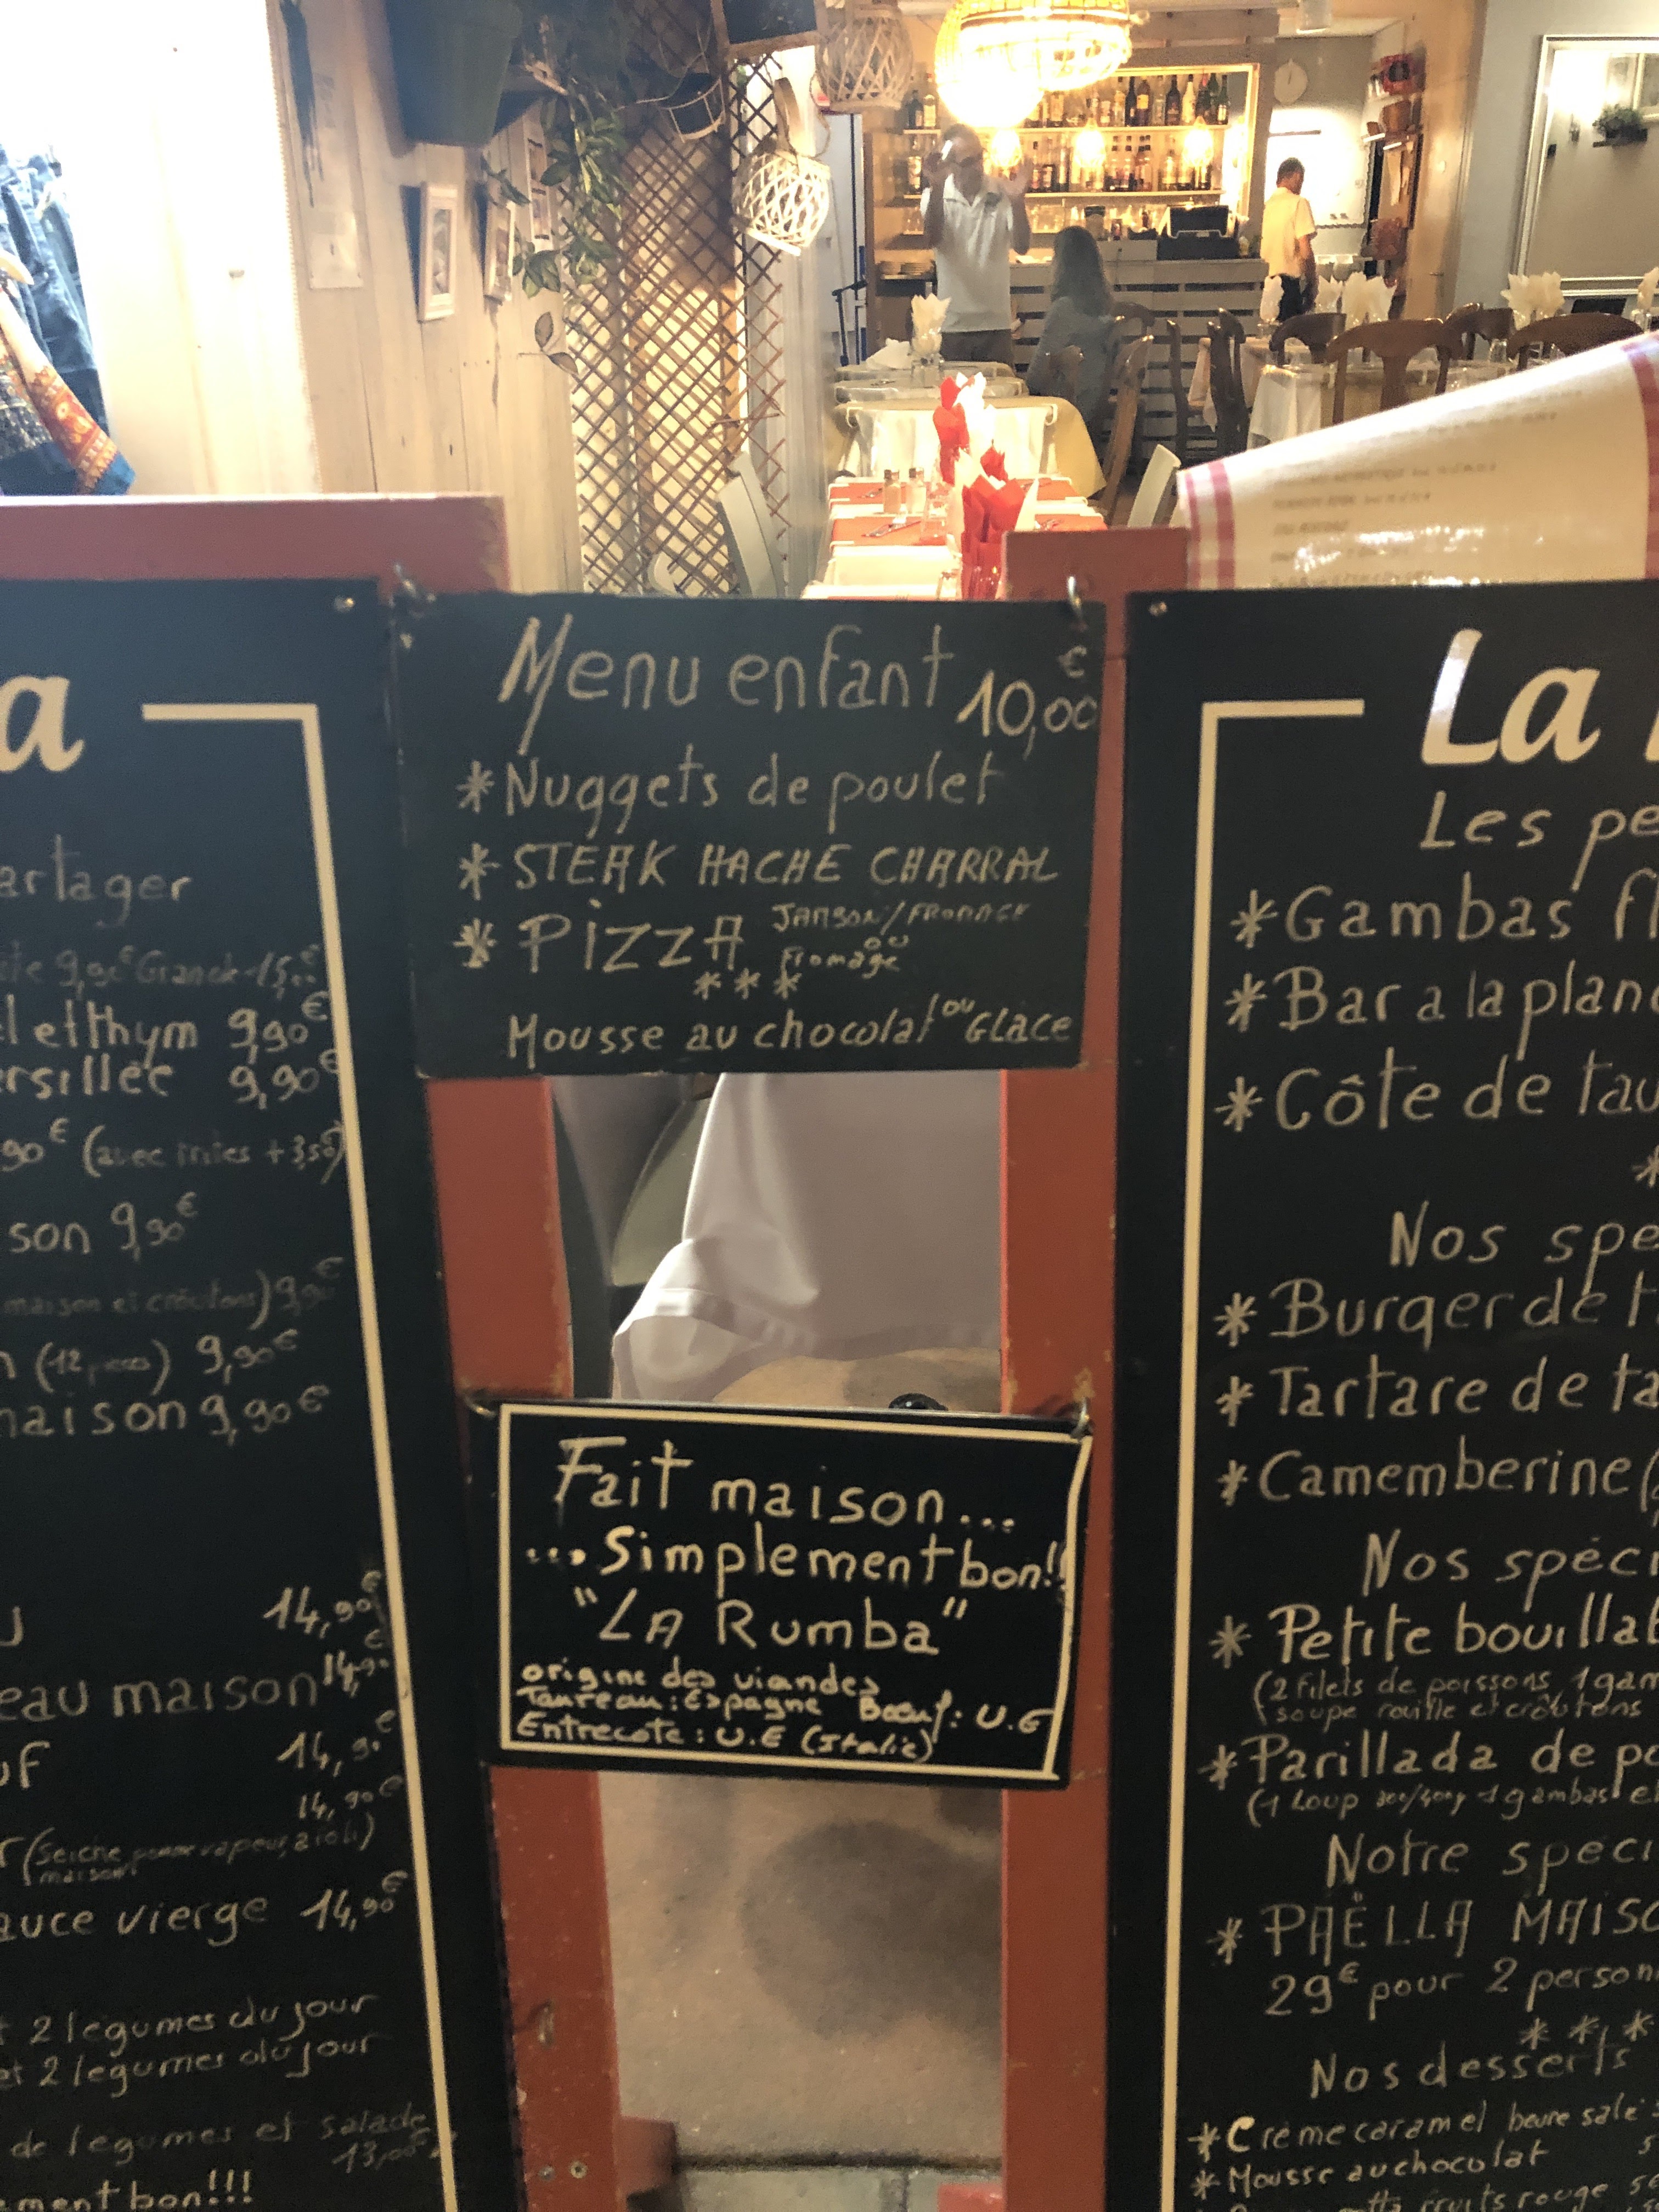 a
artager
9,90€ Grande 15,00€
et thym 9,90€
ersillée 9,90€
90€ (avec frites +3,50)
son 9,90€
maison et croûtons) 9,90€
(12 pièces) 9,90€
maison 9,90€
14,90€
eau maison 14,90
14,90€
14,90€
(Seiche, pomme vapeur, aïoli
maison)
auce vierge 14,90€
2 legumes du jour
et 2 legumes du jour
de legumes et salade
13,00€
ment bon!!!
Menu enfant 10,00€
*Nuggets de poulet
*STEAK HACHE CHARRAL
*PIZZA JAMBON/FROMAGE
ou
Fromage
***
Mousse au chocolat ou GLACE
Fait maison...
...Simplement bon!!
"LA Rumba"
origine des viandes
Taureau: Espagne Boeuf: U.E
Entrecote: U.E (Italie)
La
Les pe
*Gambas fl
*Bar a la planc
*Côte de tau
*
Nos spe
*Burger de t
*Tartare de ta
*Camemberine (
Nos spéci
*Petite bouillab
(2 filets de poissons, 1 gam
soupe rouille et croûtons
*Parillada de po
(1 Loup 300/400g 1 gambas et
Notre speci
*PAËLLA MAISO
29€ pour 2 person
***
Nos desserts
*Crème caramel beurre salé
*Mousse au chocolat 5
fruits rouge